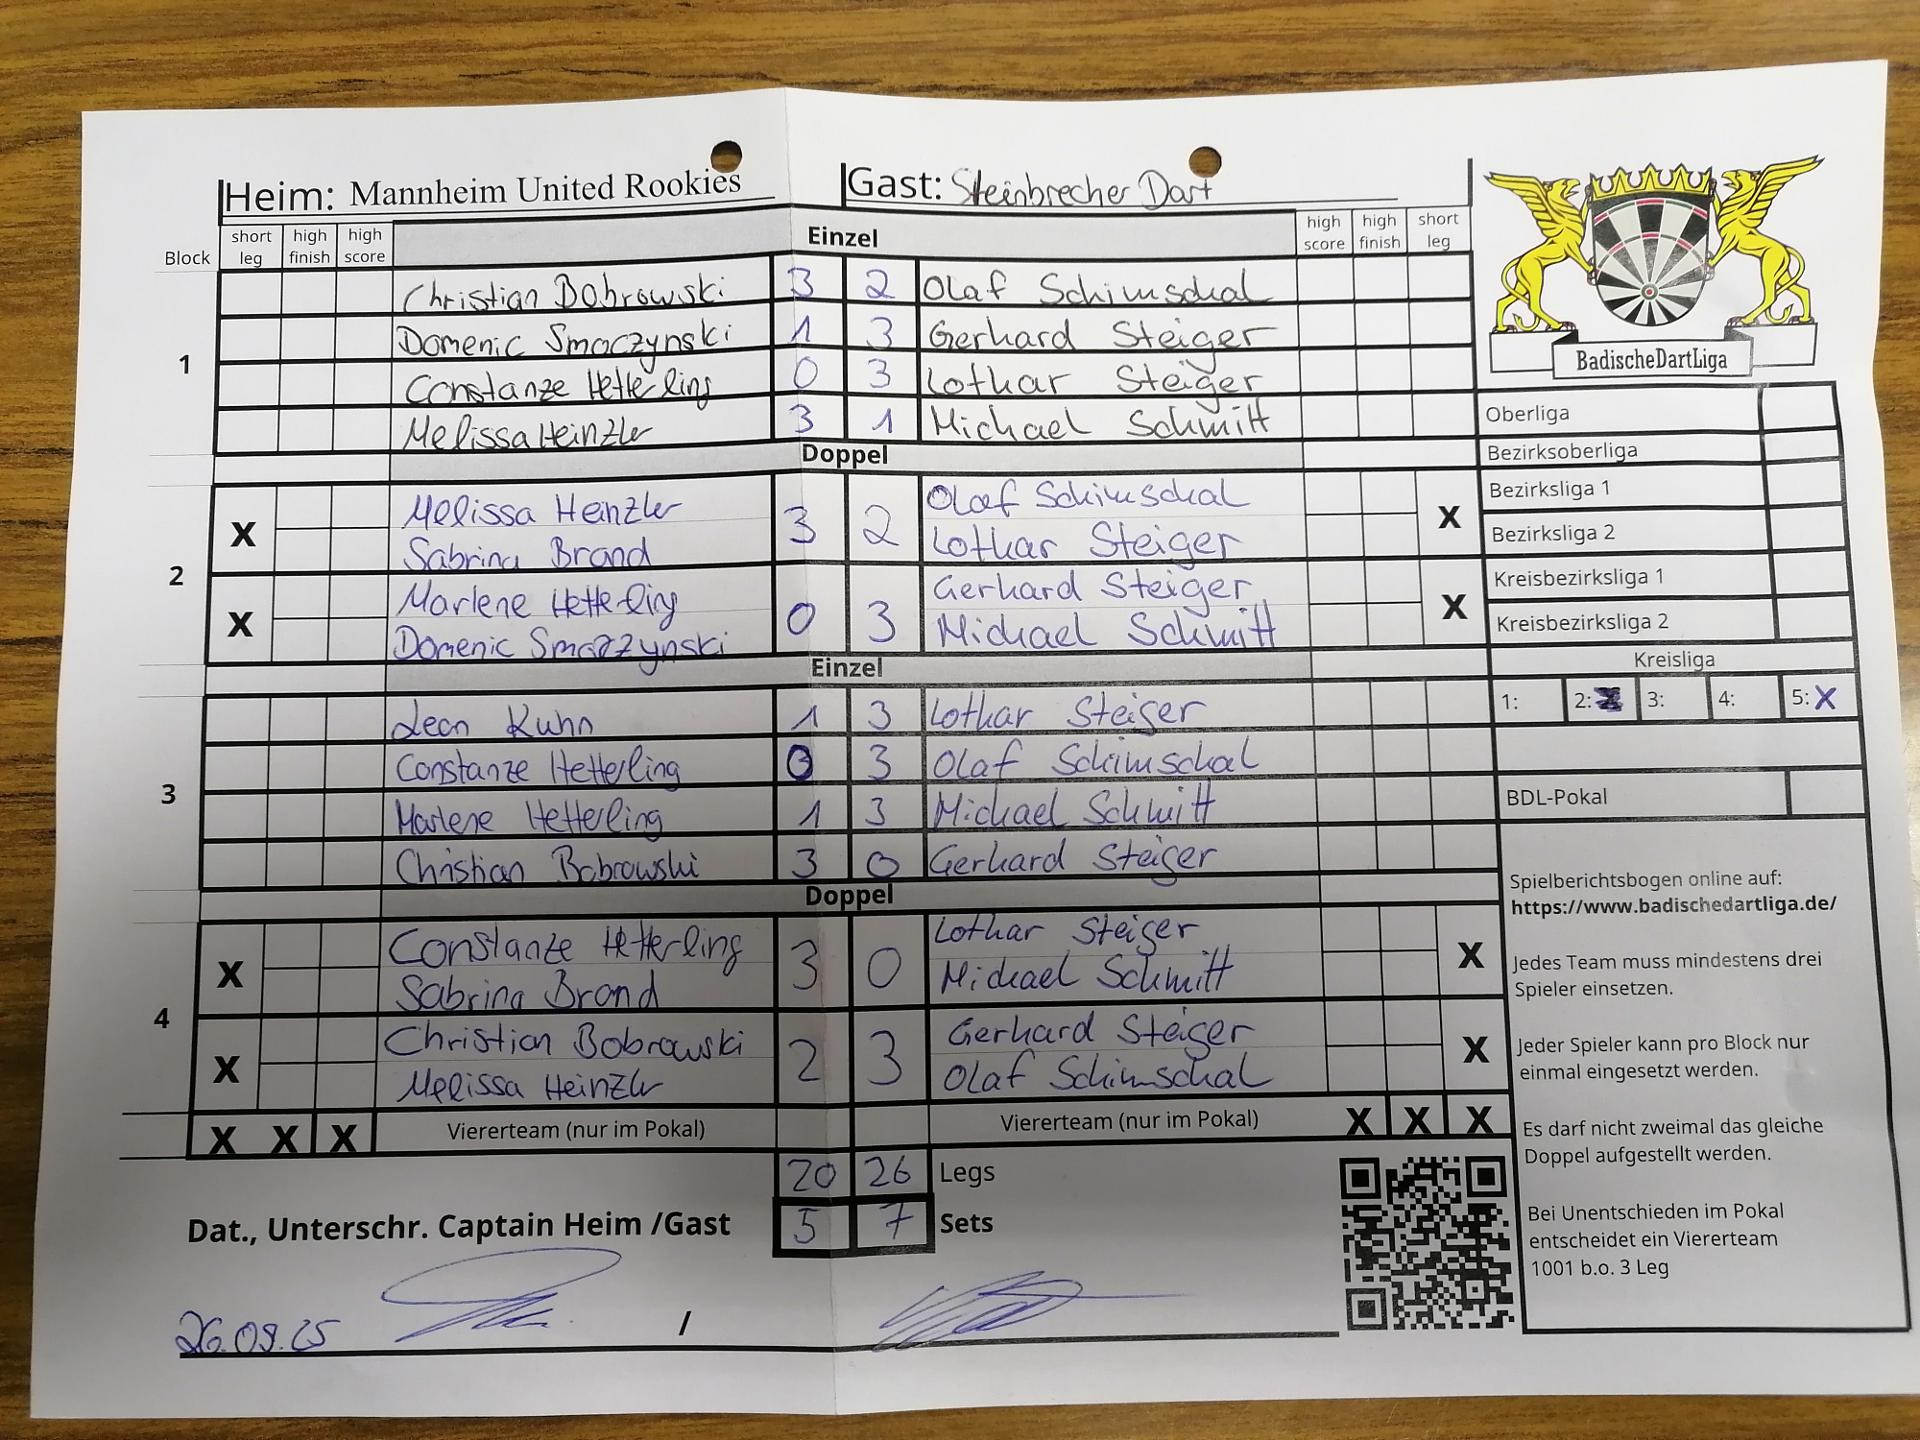 Heim: Mannheim United Rookies Gast: Steinbrecher Dart
Block short leg high finish high score Einzel high score high finish short leg
1
Christian Bobrowski 3 2 Olaf Schimschal
Domenic Smaczynski 1 3 Gerhard Steiger
Constanze Hetterling 0 3 Lothar Steiger
Melissa Heinzler 3 1 Michael Schmitt
Doppel
2
X Melissa Heinzler 3 2 Olaf Schimschal X
Sabrina Brand Lothar Steiger
X Marlene Hetterling 0 3 Gerhard Steiger X
Domenic Smaczynski Michael Schmitt
Einzel
3
Leon Kuhn 1 3 Lothar Steiger
Constanze Hetterling 0 3 Olaf Schimschal
Marlene Hetterling 1 3 Michael Schmitt
Christian Bobrowski 3 0 Gerhard Steiger
Doppel
4
X Constanze Hetterling 3 0 Lothar Steiger X
Sabrina Brand Michael Schmitt
X Christian Bobrowski 2 3 Gerhard Steiger X
Melissa Heinzler Olaf Schimschal
X X X Viererteam (nur im Pokal) Viererteam (nur im Pokal) X X X
20 26 Legs
Dat., Unterschr. Captain Heim /Gast 5 7 Sets
26.09.25 /
BadischeDartLiga
Oberliga
Bezirksoberliga
Bezirksliga 1
Bezirksliga 2
Kreisbezirksliga 1
Kreisbezirksliga 2
Kreisliga
1: 2: 3: 4: 5: X
BDL-Pokal
Spielberichtsbogen online auf:
https://www.badischedartliga.de/
Jedes Team muss mindestens drei
Spieler einsetzen.
Jeder Spieler kann pro Block nur
einmal eingesetzt werden.
Es darf nicht zweimal das gleiche
Doppel aufgestellt werden.
Bei Unentschieden im Pokal
entscheidet ein Viererteam
1001 b.o. 3 Leg